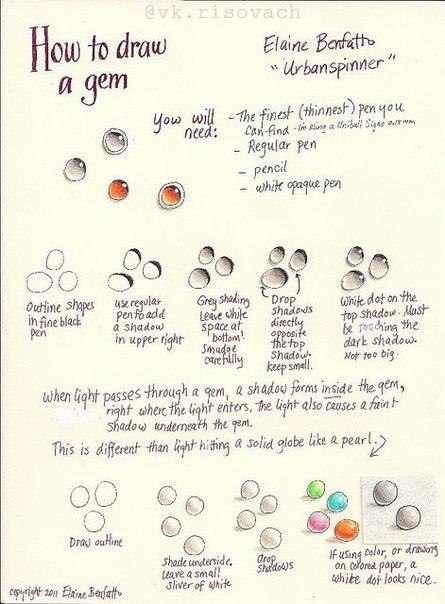 @vk.risovach
How to draw
a gem
Elaine Benfatto
"Urbanspinner"
You will
need:
- The finest (thinnest) pen you
can find - I'm using a Uniball Signo 0.18 mm
- Regular pen
- pencil
- white opaque pen
Outline shapes
in fine black
pen
use regular
pen to add
a shadow
in upper right
Grey shading
Leave white
space at
bottom!
Smudge
carefully
Drop
shadows
directly
opposite
the top
shadow.
keep small.
White dot on the
top shadow. Must
be touching the
dark shadow.
Not too big.
When light passes through a gem, a shadow forms inside the gem,
right where the light enters. The light also causes a faint
shadow underneath the gem.
This is different than light hitting a solid globe like a pearl.
Draw outline
Shade underside.
Leave a small
sliver of white
Drop
shadows
If using color, or drawing
on colored paper, a
white dot looks nice.
copyright 2011 Elaine Benfatto